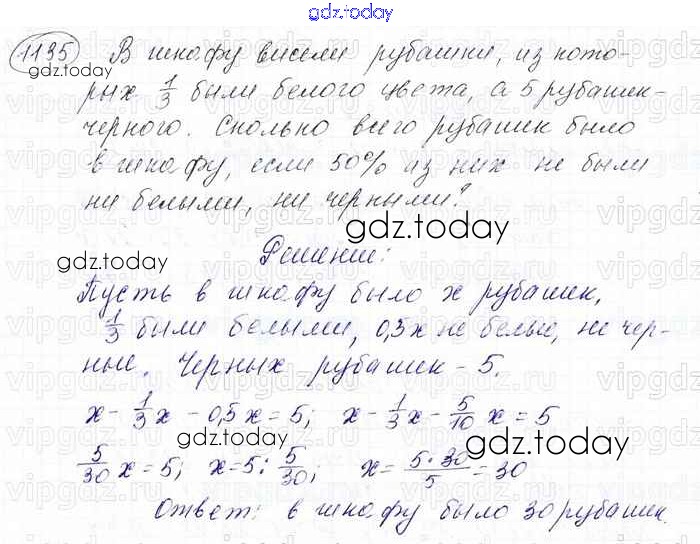 gdz.today
1135 В шкафу висели рубашки, из кото-
gdz.today
рых 1/3 были белого цвета, а 5 рубашек-
черного. Сколько всего рубашек было
в шкафу, если 50% из них не были
ни белыми, ни черными?
gdz.today
gdz.today
Решение:
Пусть в шкафу было x рубашек,
1/3 были белыми, 0,5x не белые, не чер-
ные. Черных рубашек - 5.
x - 1/3x - 0,5x = 5; x - 1/3x - 5/10x = 5
gdz.today
gdz.today
5/30x = 5; x = 5 : 5/30; x = 5·30/5 = 30
Ответ: в шкафу было 30 рубашек.